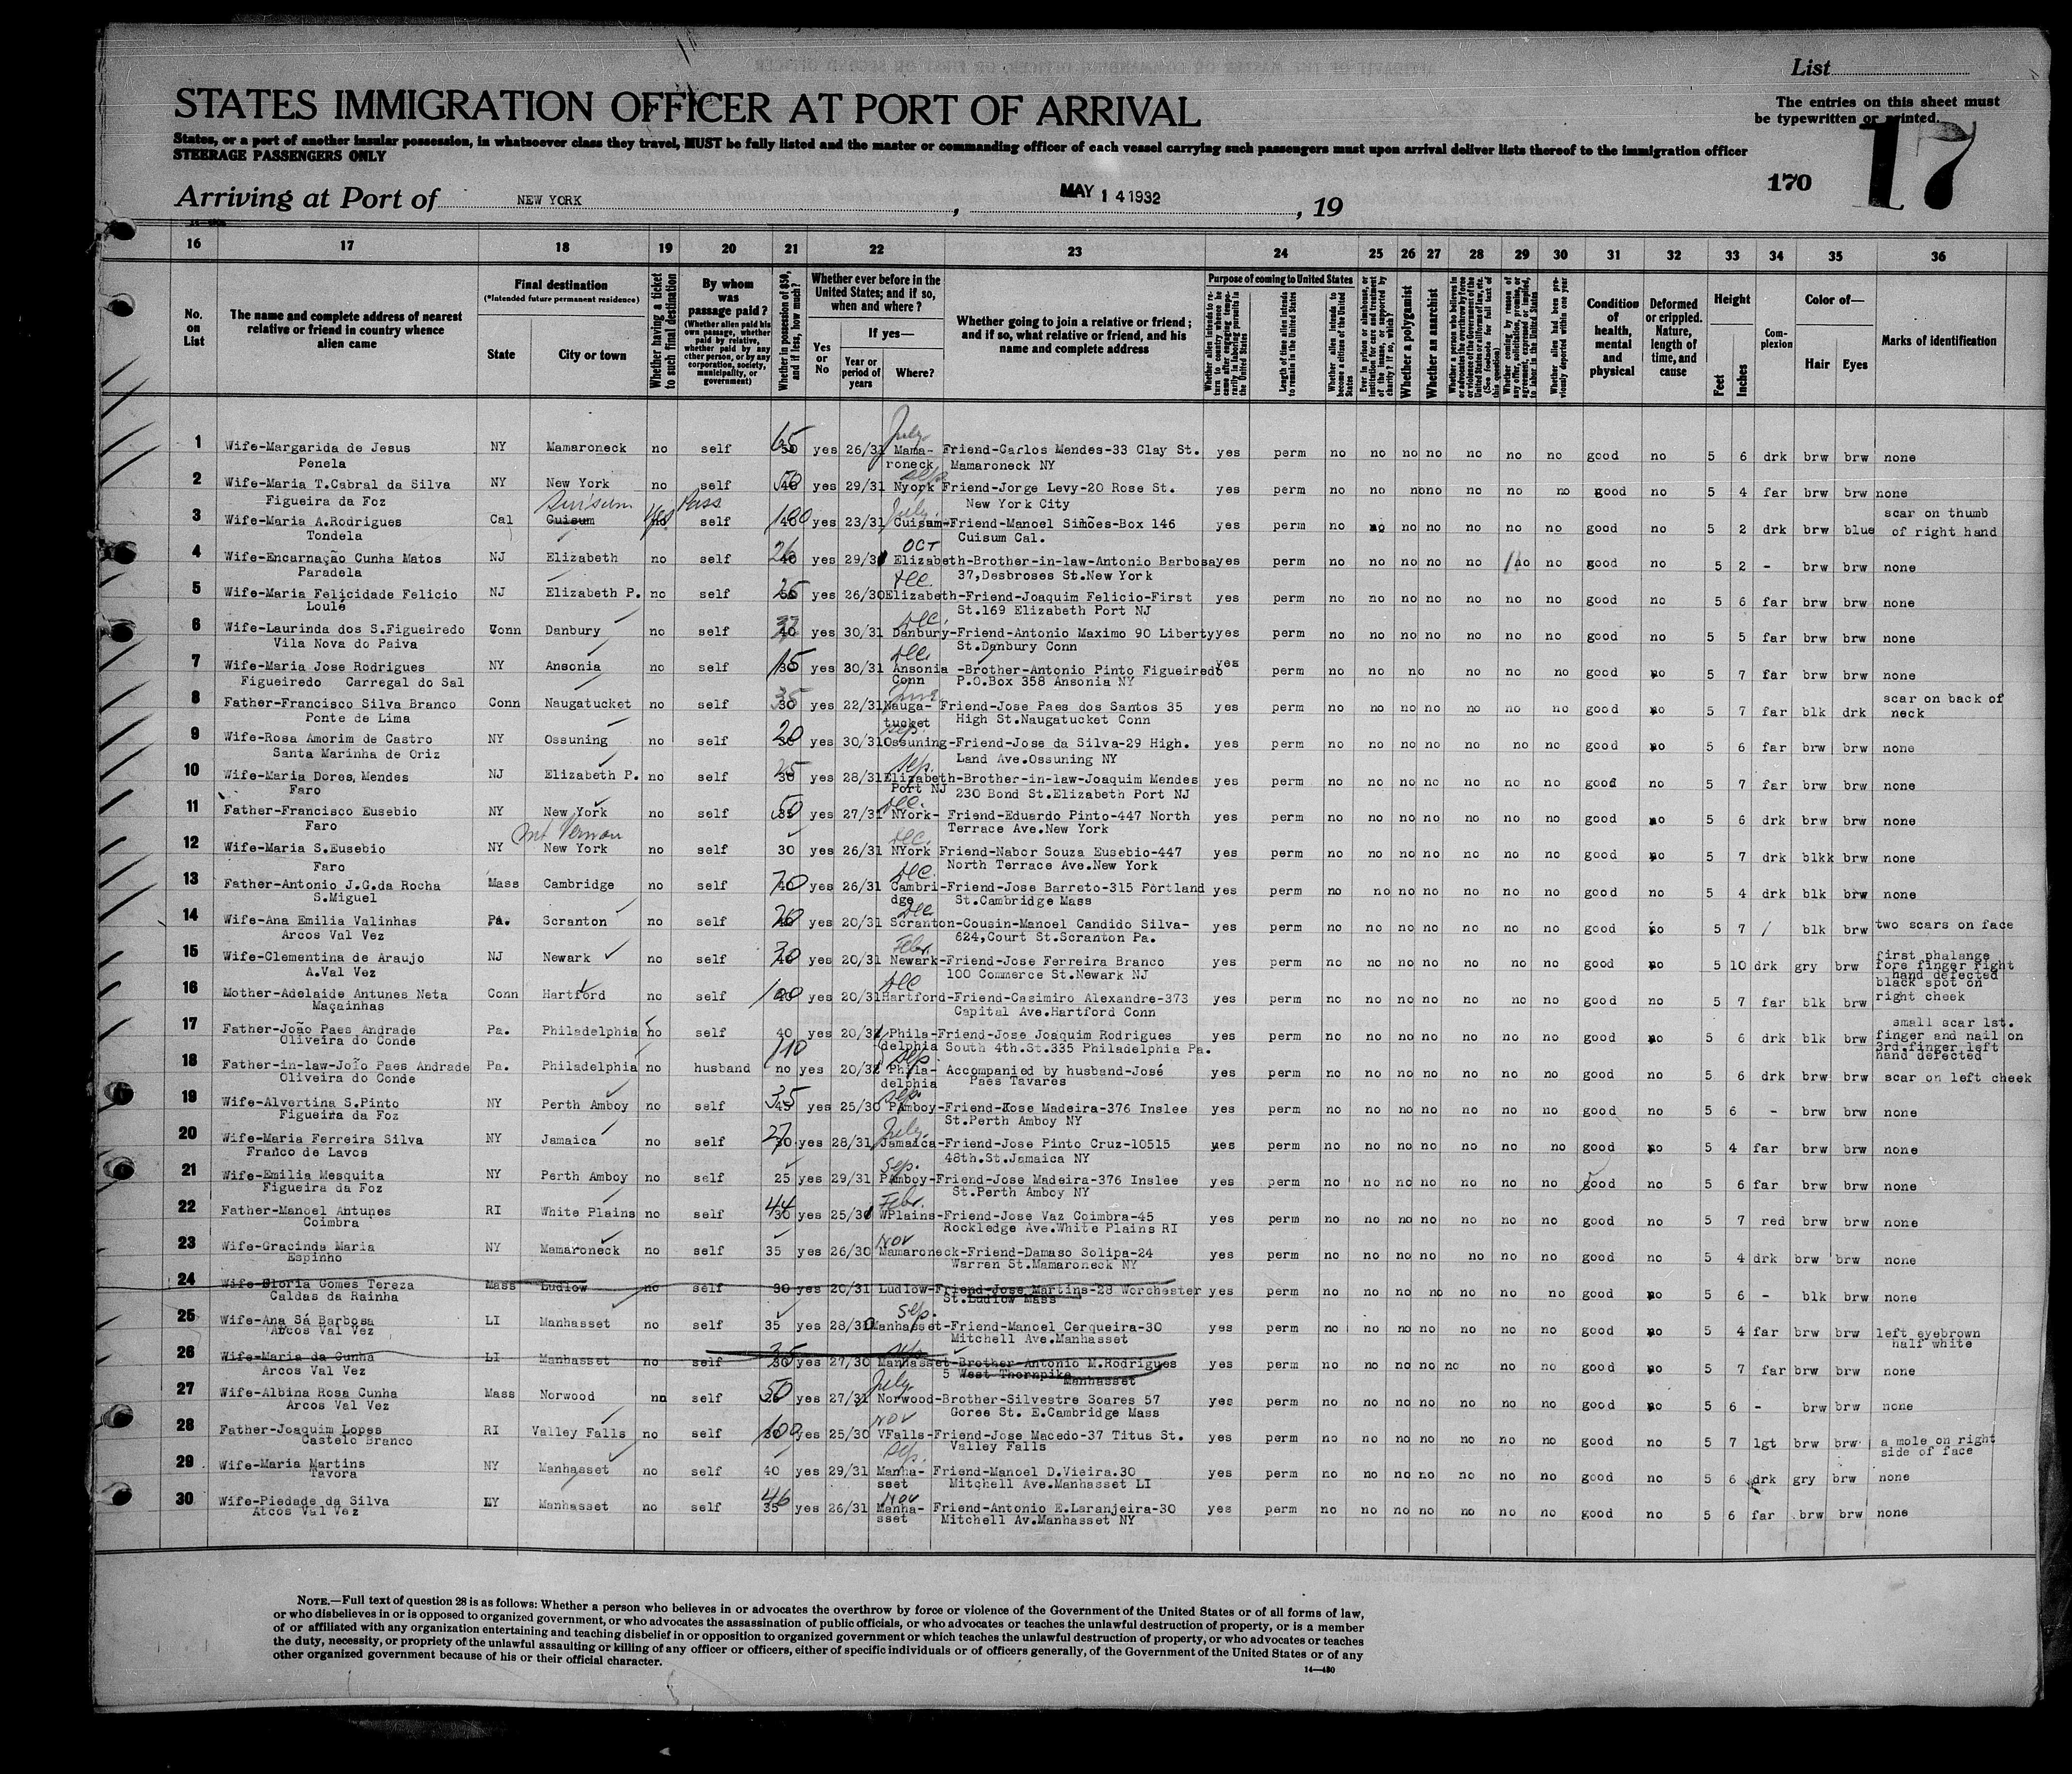 List
STATES IMMIGRATION OFFICER AT PORT OF ARRIVAL
The entries on this sheet must
be typewritten or printed.
States, or a port of another insular possession, in whatsoever class they travel, MUST be fully listed and the master or commanding officer of each vessel carrying such passengers must upon arrival deliver lists thereof to the immigration officer
STEERAGE PASSENGERS ONLY
170 17
Arriving at Port of NEW YORK, MAY 14 1932, 19
16 17 18 19 20 21 22 23 24 25 26 27 28 29 30 31 32 33 34 35 36
No. on List
The name and complete address of nearest relative or friend in country whence alien came
Final destination
(*Intended future permanent residence)
State City or town
Whether having a ticket to such final destination
By whom was passage paid?
(Whether alien paid his own passage, whether paid by relative, whether paid by any other person, or by any corporation, society, municipality, or government)
Whether in possession of $50, and if less, how much?
Whether ever before in the United States; and if so, when and where?
Yes or No
If yes—
Year or period of years Where?
Whether going to join a relative or friend; and if so, what relative or friend, and his name and complete address
Purpose of coming to United States
Length of time alien intends to remain in the United States
Whether alien intends to become a citizen of the United States
Whether a polygamist
Whether an anarchist
Condition of health, mental and physical
Deformed or crippled. Nature, length of time, and cause
Height
Feet Inches
Complexion
Color of—
Hair Eyes
Marks of identification
1 Wife-Margarida de Jesus NY Mamaroneck no self 65 yes 26/31 July Mama- Friend-Carlos Mendes-33 Clay St. yes perm no no no no no no no good no 5 6 drk brw brw none
Penela roneck Mamaroneck NY
2 Wife-Maria T.Cabral da Silva NY New York no self 50 yes 29/31 Nyork Friend-Jorge Levy-20 Rose St. yes perm no no no no no no no good no 5 4 far brw brw none
Figueira da Foz New York City
3 Wife-Maria A.Rodrigues Cal Suisum Guisum yes no Pass self 100 40 yes 23/31 July Cuisum-Friend-Manoel Simões-Box 146 yes perm no no no no no no no good no 5 2 drk brw blue scar on thumb
Tondela Cuisum Cal. of right hand
4 Wife-Encarnação Cunha Matos NJ Elizabeth no self 26 40 yes 29/3 OCT Elizabeth-Brother-in-law-Antonio Barbosa yes perm no no no no no no no good no 5 2 - brw brw none
Paradela 37,Desbroses St.New York
5 Wife-Maria Felicidade Felicio NJ Elizabeth P. no self yes 26/30 Dec. Elizabeth-Friend-Joaquim Felicio-First yes perm no no no no no no no good no 5 6 far brw brw none
Loulé St.169 Elizabeth Port NJ
6 Wife-Laurinda dos S.Figueiredo Conn Danbury no self 40 yes 30/31 Dec. Danbury-Friend-Antonio Maximo 90 Liberty yes perm no no no no no no no good no 5 5 far brw brw none
Vila Nova do Paiva St.Danbury Conn
7 Wife-Maria Jose Rodrigues NY Ansonia no self 15 30 yes 30/31 Dec. Ansonia -Brother-Antonio Pinto Figueiredo yes perm no no no no no no good no 5 7 far brw brw none
Figueiredo Carregal do Sal Conn P.O.Box 358 Ansonia NY
8 Father-Francisco Silva Branco Conn Naugatucket no self 35 30 yes 22/31 Nauga- Friend-Jose Paes dos Santos 35 yes perm no no no no no no no good no 5 7 far blk drk scar on back of
Ponte de Lima tucket High St.Naugatucket Conn neck
9 Wife-Rosa Amorim de Castro NY Ossuning no self 20 yes 30/31 Sep. Ossuning-Friend-Jose da Silva-29 High. yes perm no no no no no no no good no 5 6 far brw brw none
Santa Marinha de Oriz Land Ave.Ossuning NY
10 Wife-Maria Dores, Mendes NJ Elizabeth P. no self 25 30 yes 28/31 Sep. Elizabeth-Brother-in-law-Joaquim Mendes yes perm no no no no no no no good no 5 7 far brw brw none
Faro Port NJ 230 Bond St.Elizabeth Port NJ
11 Father-Francisco Eusebio NY New York no self 50 35 yes 27/31 Dec. NYork- Friend-Eduardo Pinto-447 North yes perm no no no no no no no good no 5 6 drk brw brw none
Faro Terrace Ave.New York
12 Wife-Maria S.Eusebio NY Mt Vernon New York no self 30 yes 26/31 Dec. NYork Friend-Nabor Souza Eusebio-447 yes perm no no no no no no no good no 5 7 drk blkk brw none
Faro North Terrace Ave.New York
13 Father-Antonio J.G.da Rocha Mass Cambridge no self 70 yes 26/31 Dec. Cambri-Friend-Jose Barreto-315 Portland yes perm no no no no no no no good no 5 4 drk blk brw none
S.Miguel dge St.Cambridge Mass
14 Wife-Ana Emilia Valinhas Pa. Scranton no self 20 yes 20/31 Dec Scranton-Cousin-Manoel Candido Silva- yes perm no no no no no no no good no 5 7 / blk brw two scars on face
Arcos Val Vez 624,Court St.Scranton Pa.
15 Wife-Clementina de Araujo NJ Newark no self 30 40 yes 20/31 Febr. Newark-Friend-Jose Ferreira Branco yes perm no no no no no no no good no 5 10 drk gry brw first phalange
A.Val Vez 100 Commerce St.Newark NJ fore finger right
hand defected
16 Mother-Adelaide Antunes Neta Conn Hartford no self 100 yes 20/31 Dec Hartford-Friend-Casimiro Alexandre-373 yes perm no no no no no no no good no 5 7 far blk brw black spot on
Maçainhas Capital Ave.Hartford Conn right cheek
17 Father-João Paes Andrade Pa. Philadelphia no self 40 yes 20/32 Phila-Friend-Jose Joaquim Rodrigues yes perm no no no no no no no good no 5 6 drk blk brw small scar 1st.
Oliveira do Conde delphia South 4th.St.335 Philadelphia Pa. finger and nail on
3rd.finger left
hand defected
18 Father-in-law-João Paes Andrade Pa. Philadelphia no husband 110 no yes 20/32 Sep. Phila- Accompanied by husband-José yes perm no no no no no no no good no 5 6 drk brw brw scar on left cheek
Oliveira do Conde delphia Paes Tavares
19 Wife-Alvertina S.Pinto NY Perth Amboy no self 35 45 yes 25/30 Sep. PAmboy-Friend-Xose Madeira-376 Inslee yes perm no no no no no no no good no 5 6 - brw brw none
Figueira da Foz St.Perth Amboy NY
20 Wife-Maria Ferreira Silva NY Jamaica no self 27 30 yes 28/31 July Jamaica-Friend-Jose Pinto Cruz-10515 yes perm no no no no no no no good no 5 4 far brw brw none
Franco de Lavos 48th.St.Jamaica NY
21 Wife-Emilia Mesquita NY Perth Amboy no self 25 yes 29/31 Sep. PAmboy-Friend-Jose Madeira-376 Inslee yes perm no no no no no no no good no 5 6 far brw brw none
Figueira da Foz St.Perth Amboy NY
22 Father-Manoel Antunes RI White Plains no self 44 30 yes 25/30 Febr. WPlains-Friend-Jose Vaz Coimbra-45 yes perm no no no no no no no good no 5 7 red brw brw none
Coimbra Rockledge Ave.White Plains RI
23 Wife-Gracinda Maria NY Mamaroneck no self 35 yes 26/30 Nov Mamaroneck-Friend-Damaso Solipa-24 yes perm no no no no no no no good no 5 4 drk brw brw none
Espinho Warren St.Mamaroneck NY
24 Wife-Gloria Gomes Tereza Mass Ludlow no self 30 yes 20/31 Ludlow-Friend-Jose Martins-28 Worchester yes perm no no no no no no no good no 5 6 - blk brw none
Caldas da Rainha St.Ludlow Mass
25 Wife-Ana Sá Barbosa LI Manhasset no self 35 yes 28/31 Sep. Manhasset-Friend-Manoel Cerqueira-30 yes perm no no no no no no no good no 5 4 far brw brw left eyebrown
Arcos Val Vez Mitchell Ave.Manhasset half white
26 Wife-Maria da Cunha LI Manhasset no self 35 30 yes 27/30 Sep Manhasset-Brother-Antonio M.Rodrigues yes perm no no no no no no no good no 5 7 far brw brw none
Arcos Val Vez 5 West Thornpike
Manhasset
27 Wife-Albina Rosa Cunha Mass Norwood no self 50 yes 27/31 July Norwood-Brother-Silvestre Soares 57 yes perm no no no no no no no good no 5 6 - brw brw none
Arcos Val Vez Goree St. E.Cambridge Mass
28 Father-Joaquim Lopes RI Valley Falls no self 100 yes 25/30 Nov VFalls-Friend-Jose Macedo-37 Titus St. yes perm no no no no no no no good no 5 7 lgt brw brw a mole on right
Castelo Branco Valley Falls side of face
29 Wife-Maria Martins NY Manhasset no self 40 yes 29/31 Sep. Manha- Friend-Manoel D.Vieira.30 yes perm no no no no no no no good no 5 6 drk gry brw none
Tavora sset Mitchell Ave.Manhasset LI
30 Wife-Piedade da Silva NY Manhasset no self 46 35 yes 26/31 Nov Manha- Friend-Antonio E.Laranjeira-30 yes perm no no no no no no no good no 5 6 far brw brw none
Atcos Val Vez sset Mitchell Av.Manhasset NY
NOTE.—Full text of question 28 is as follows: Whether a person who believes in or advocates the overthrow by force or violence of the Government of the United States or of all forms of law,
or who disbelieves in or is opposed to organized government, or who advocates the assassination of public officials, or who advocates or teaches the unlawful destruction of property, or is a member
of or affiliated with any organization entertaining and teaching disbelief in or opposition to organized government or which teaches the unlawful destruction of property, or who advocates or teaches
the duty, necessity, or propriety of the unlawful assaulting or killing of any officer or officers, either of specific individuals or of officers generally, of the Government of the United States or of any
other organized government because of his or their official character.
14—430